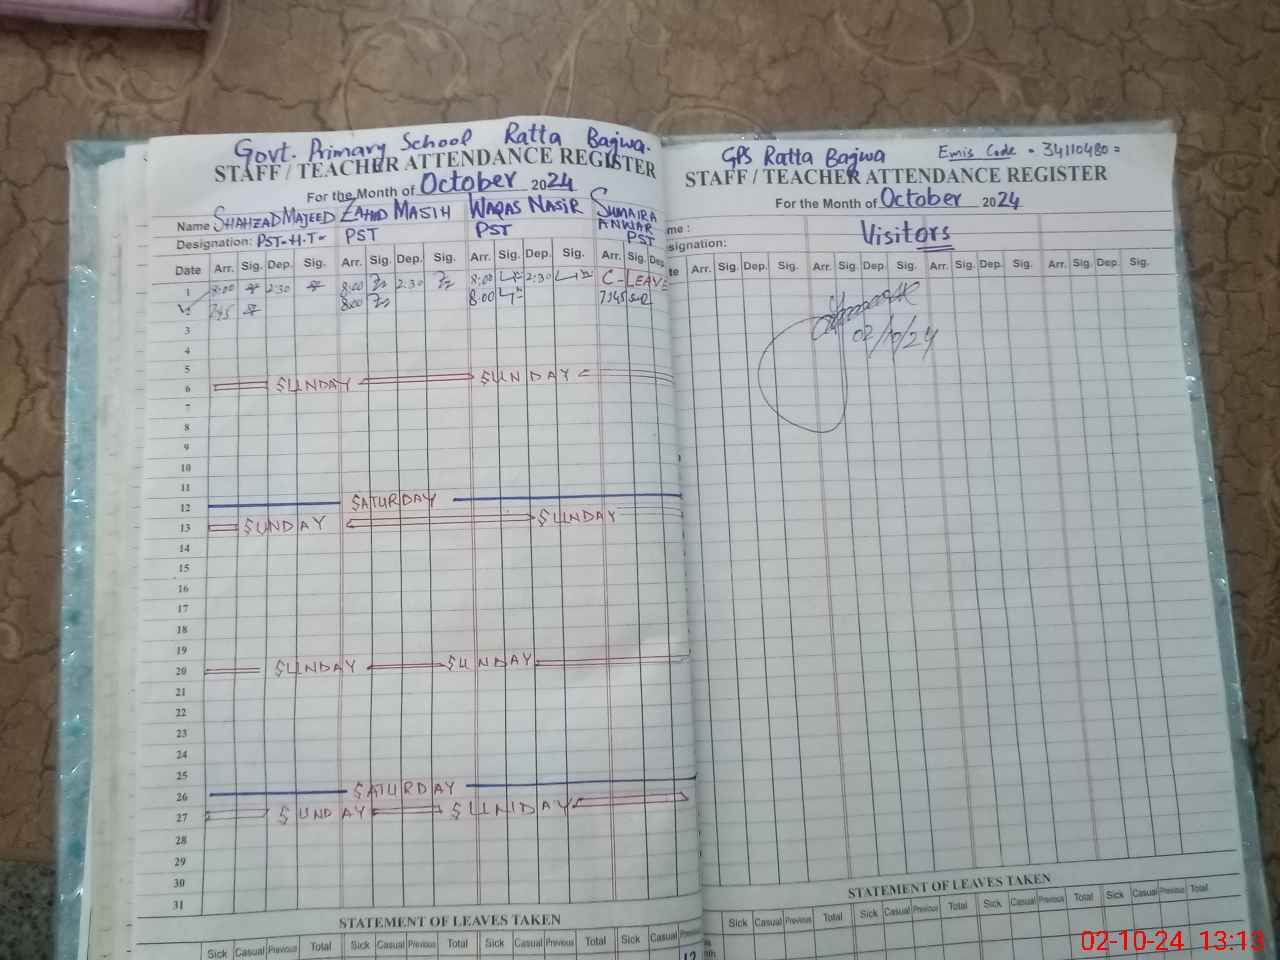 Govt. Primary School Ratta Bajwa.
STAFF / TEACHER ATTENDANCE REGISTER
For the Month of October 2024
Name SHAHZAD MAJEED ZAHID MASIH WAQAS NASIR SUMAIRA ANWAR
Designation: PST-H.T- PST PST PST
Date Arr. Sig. Dep. Sig. Arr. Sig. Dep. Sig. Arr. Sig. Dep. Sig. Arr. Sig. Dep.
1 8:00 2:30 8:00 2:30 8:00 2:30 C-LEAVE
2 7:45 8:00 8:00 7:45
3
4
5
6 SUNDAY SUNDAY
7
8
9
10
11
12 SATURDAY
13 SUNDAY SUNDAY
14
15
16
17
18
19
20 SUNDAY SUNDAY
21
22
23
24
25
26 SATURDAY
27 SUNDAY SUNDAY
28
29
30
31
STATEMENT OF LEAVES TAKEN
Sick Casual Previous Total Sick Casual Previous Total Sick Casual Previous Total Sick Casual Previous
GPS Ratta Bajwa Emis Code = 34110480 =
STAFF / TEACHER ATTENDANCE REGISTER
For the Month of October 2024
me :
signation: Visitors
te Arr. Sig. Dep. Sig. Arr. Sig. Dep. Sig. Arr. Sig. Dep. Sig. Arr. Sig. Dep. Sig.
02/10/24
STATEMENT OF LEAVES TAKEN
Sick Casual Previous Total Sick Casual Previous Total Sick Casual Previous Total Sick Casual Previous Total
02-10-24 13:13